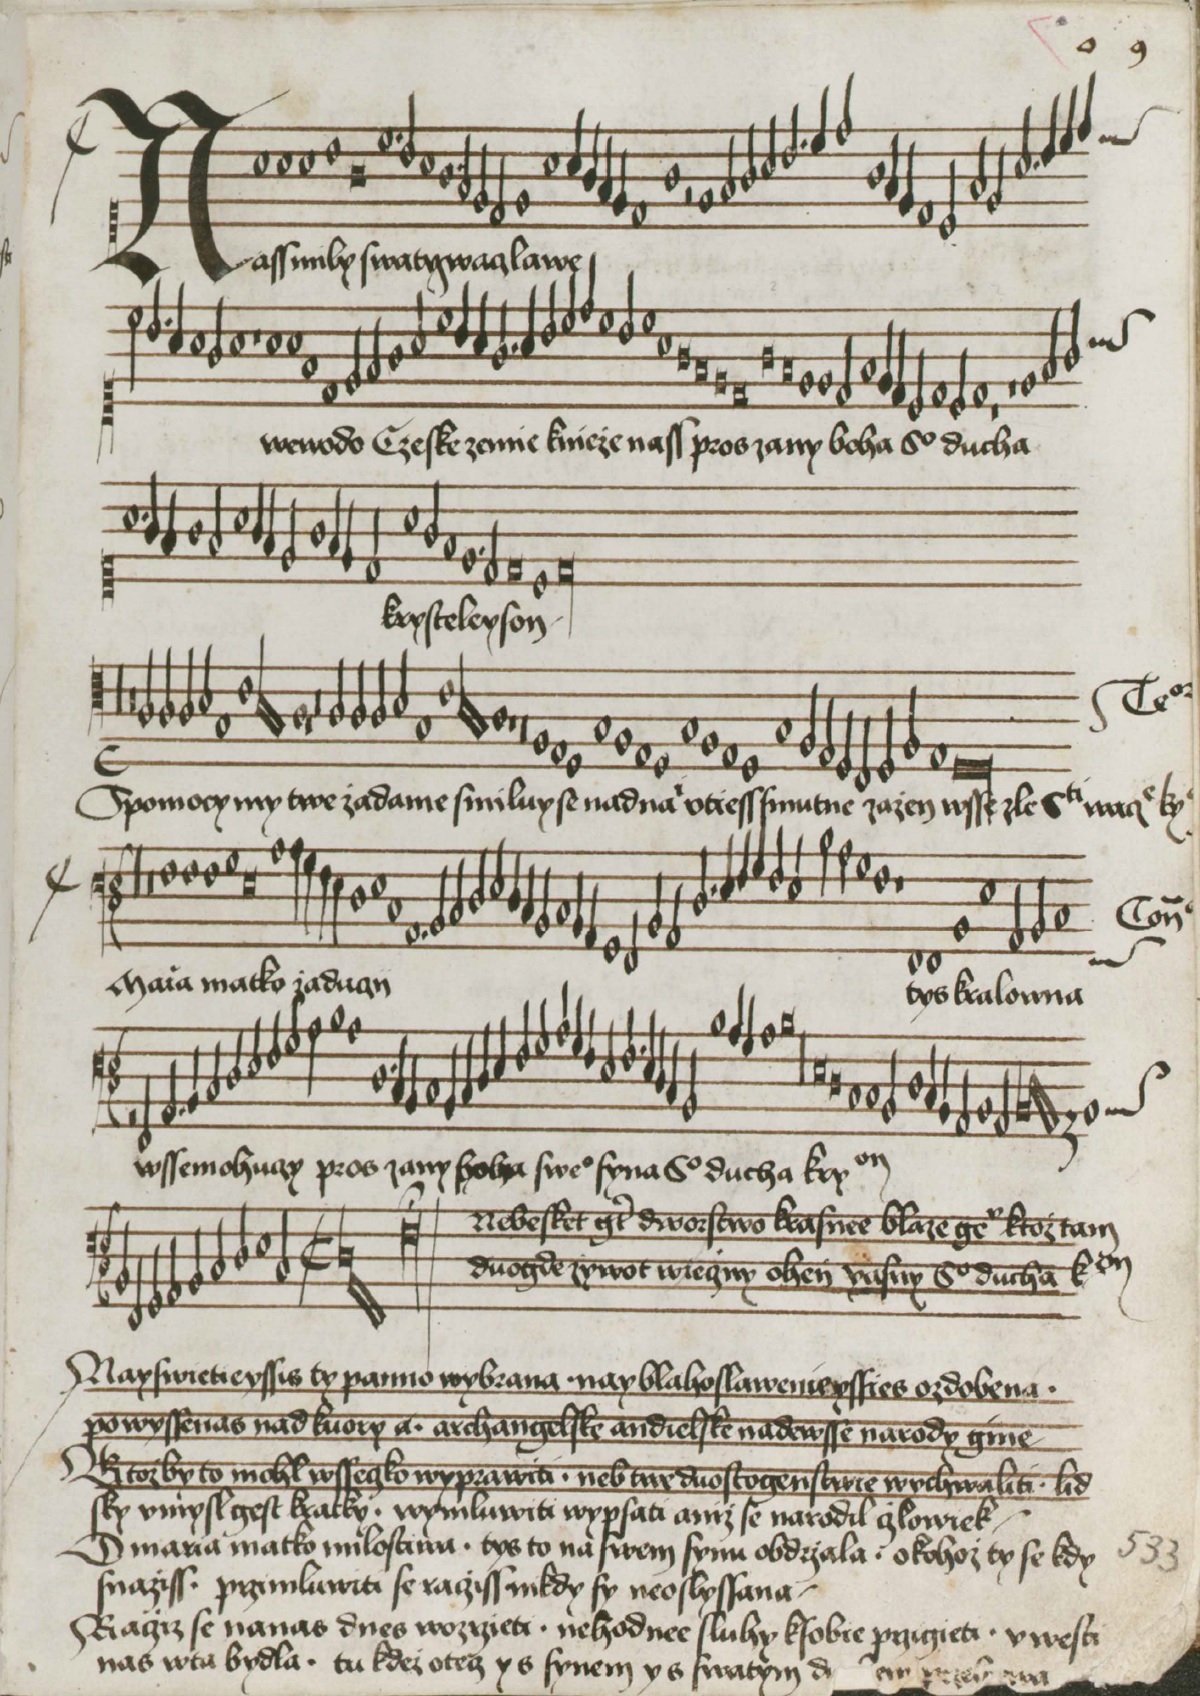 9
Nassmiby swatywaczlawe
wewodo Czeske zemie knieze nass pros zany boha So ducha
krysteleyson
Teor
Spomoczy my twe zadame smiluy se nadna vtiess smutne zazen wsse zle Sti wacze ky
Con
Maria matko zaducy
tys kralowna
wssemohuczy pros zany boha sweo syna So ducha kryon
Nebesket gt dworstwo krasnee blaze gev ktoz tam
duogde zywot wieczny ohen yasny So ducha kon
Nayswietieyssis ty panno wybrana · nay blahoslawenieyssies ozdobena ·
powyssenas nad kuory a · archangelske andielske nadewsse narody gine
Ktozby to mohl wsseczko wyprawiti · neb twe duostogenstwie wychwaliti · lid
sky vmysl gest kratky · wymluwiti wypsati aniz se narodil czlowiek
O maria matko milostiwa · tys to na swem synu obdrzala · okohoz ty se kdy
snaziss · przimluwiti se racziss nikdy sy neoslyssana
Racziz se nanas dnes wozrzieti · nehodnee sluhy ksobie przigieti · vwesti
nas wta bydla · tu kdez otecz y s synem y s swatym
533